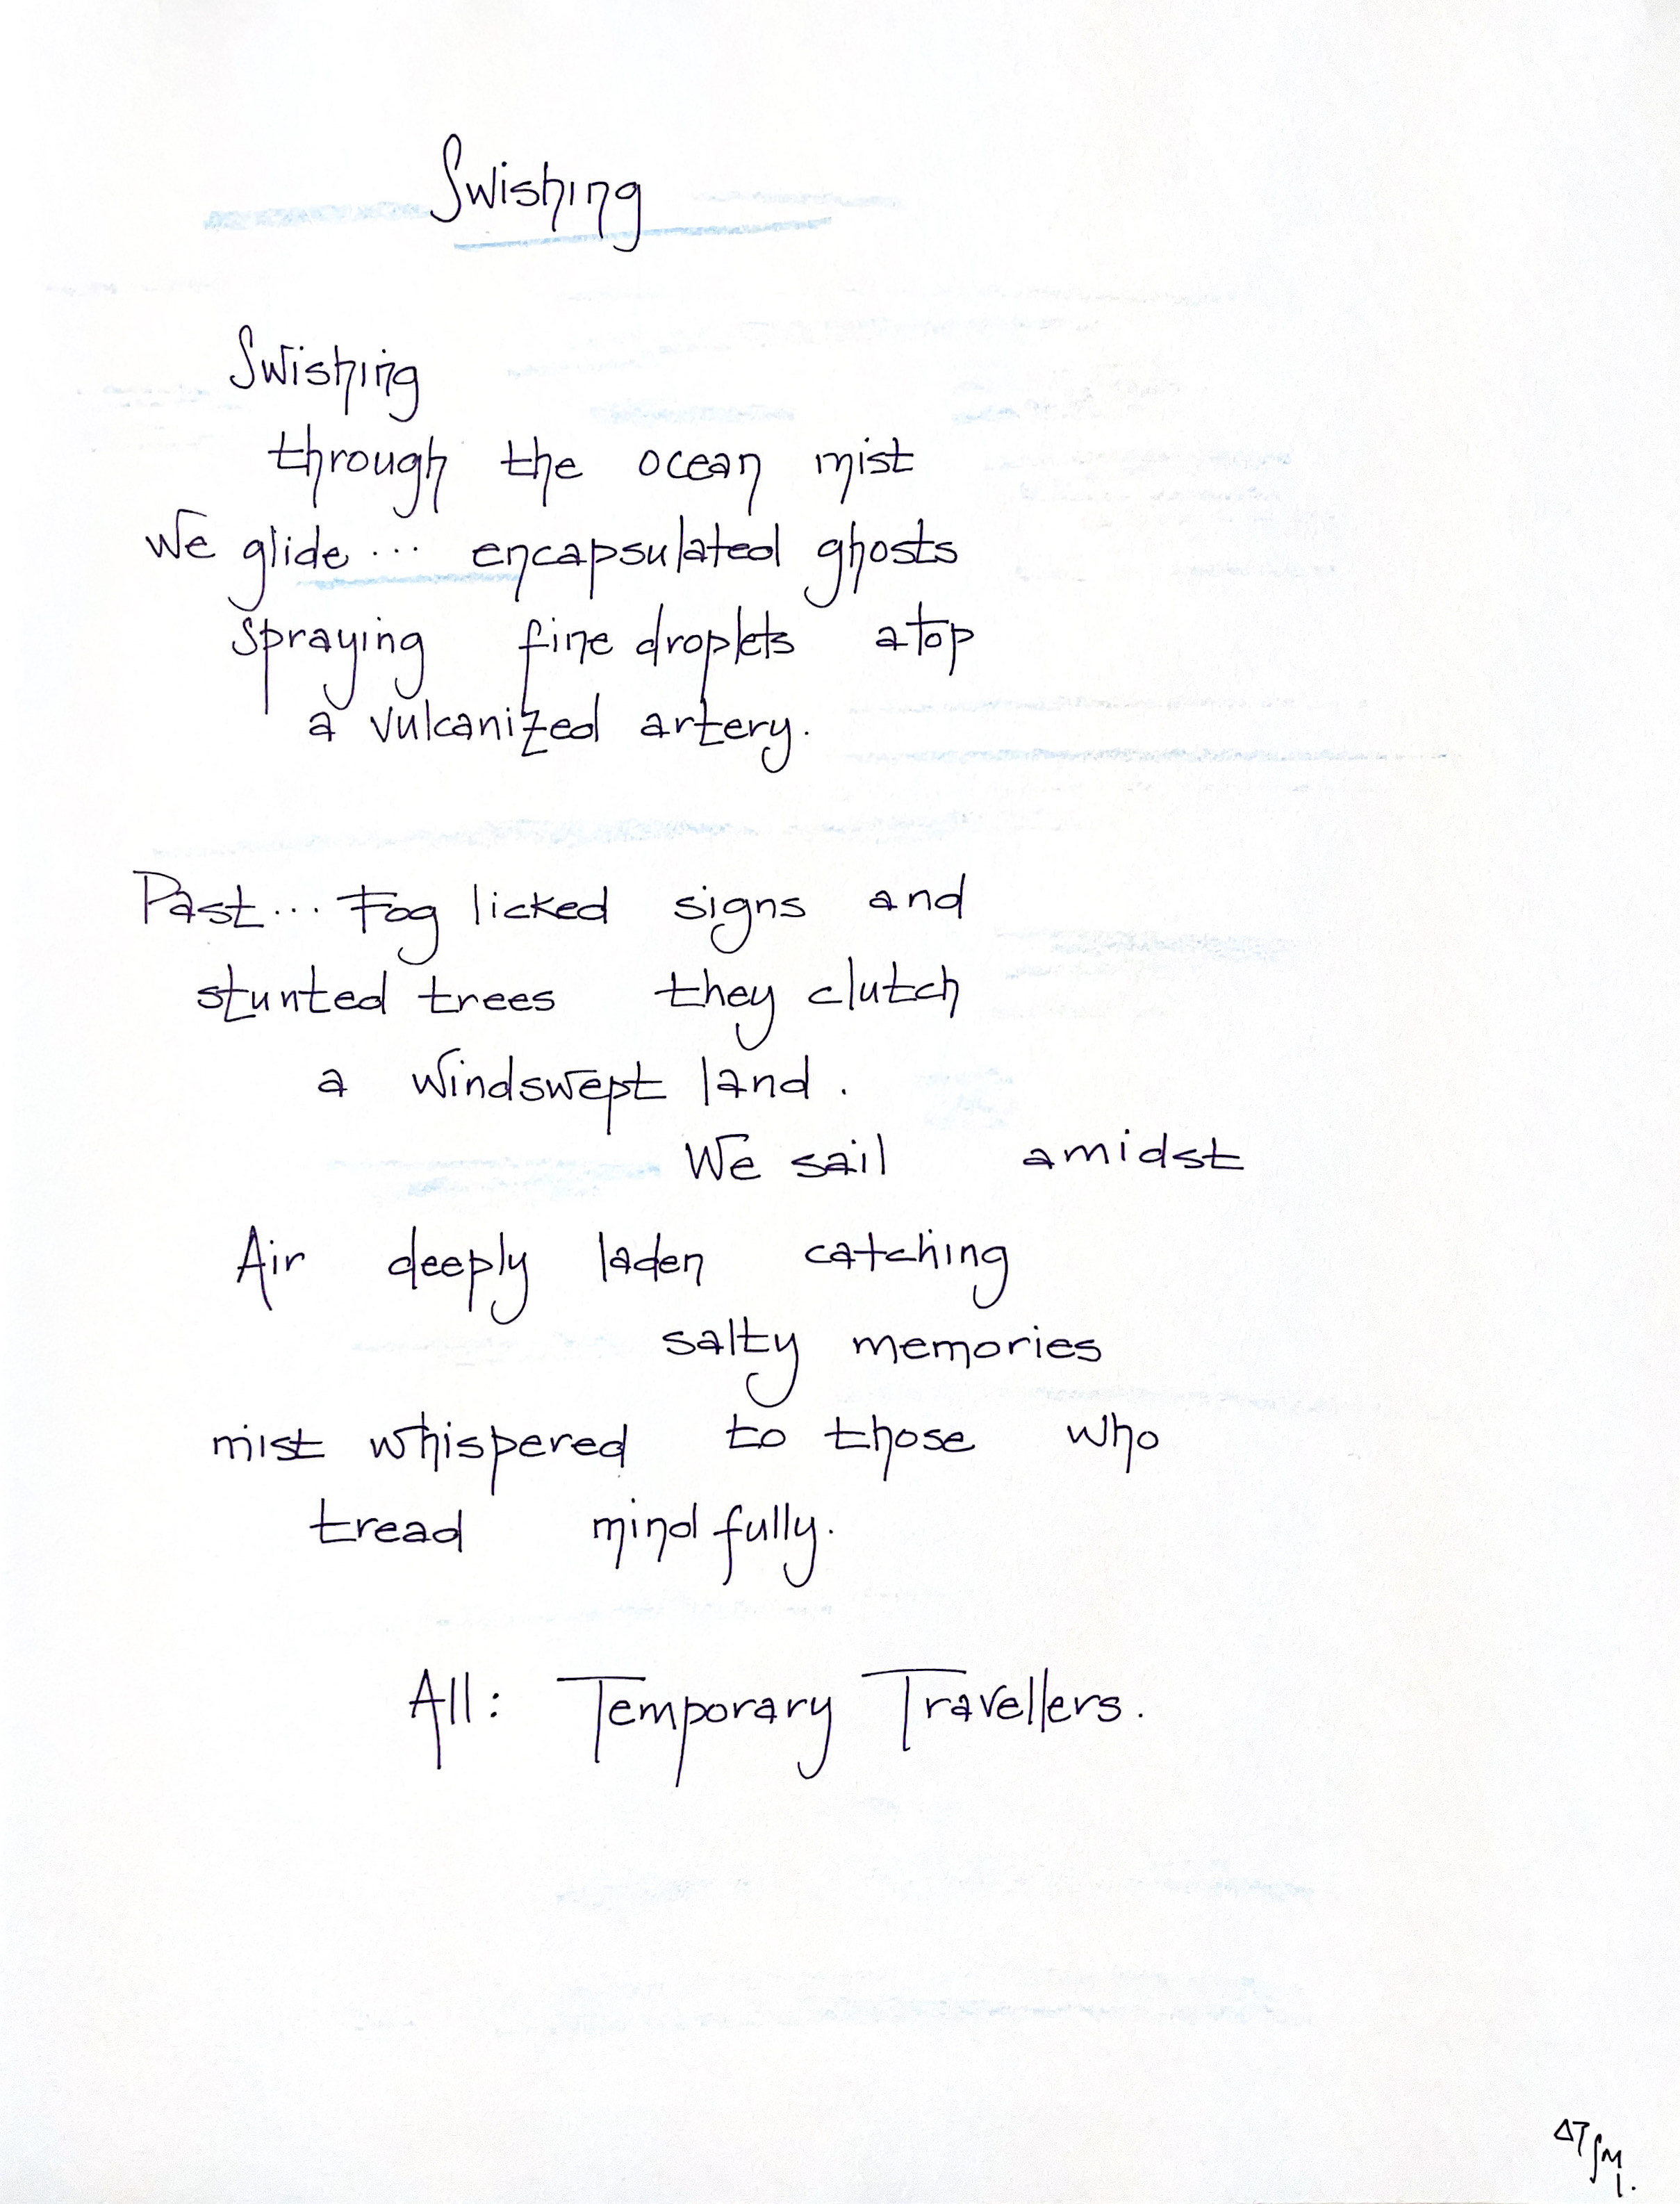 Swishing
Swishing
through the ocean mist
We glide... encapsulated ghosts
spraying fine droplets atop
a vulcanized artery.
Past... Fog licked signs and
stunted trees they clutch
a windswept land.
We sail amidst
Air deeply laden catching
salty memories
mist whispered to those who
tread mindfully.
All: Temporary Travellers.